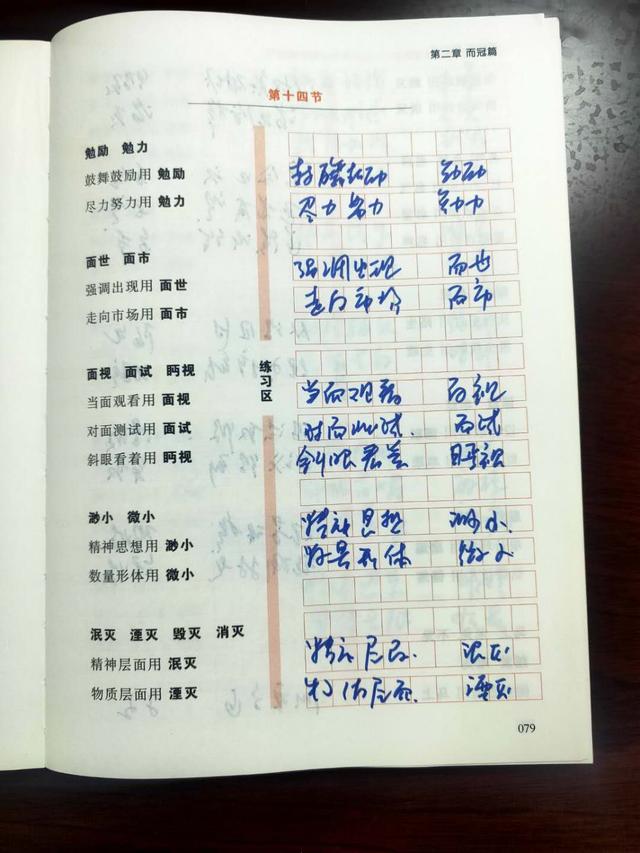 第二章 而冠篇
第十四节
勉励 勉力
鼓舞鼓励用 勉励 鼓舞鼓励 勉励
尽力努力用 勉力 尽力努力 勉力
面世 面市
强调出现用 面世 强调出现 面世
走向市场用 面市 走向市场 面市
练习区
面视 面试 眄视
当面观看用 面视 当面观看 面视
对面测试用 面试 对面测试 面试
斜眼看着用 眄视 斜眼看着 眄视
渺小 微小
精神思想用 渺小 精神思想 渺小
数量形体用 微小 数量形体 微小
泯灭 湮灭 毁灭 消灭
精神层面用 泯灭 精神层面 泯灭
物质层面用 湮灭 物质层面 湮灭
079